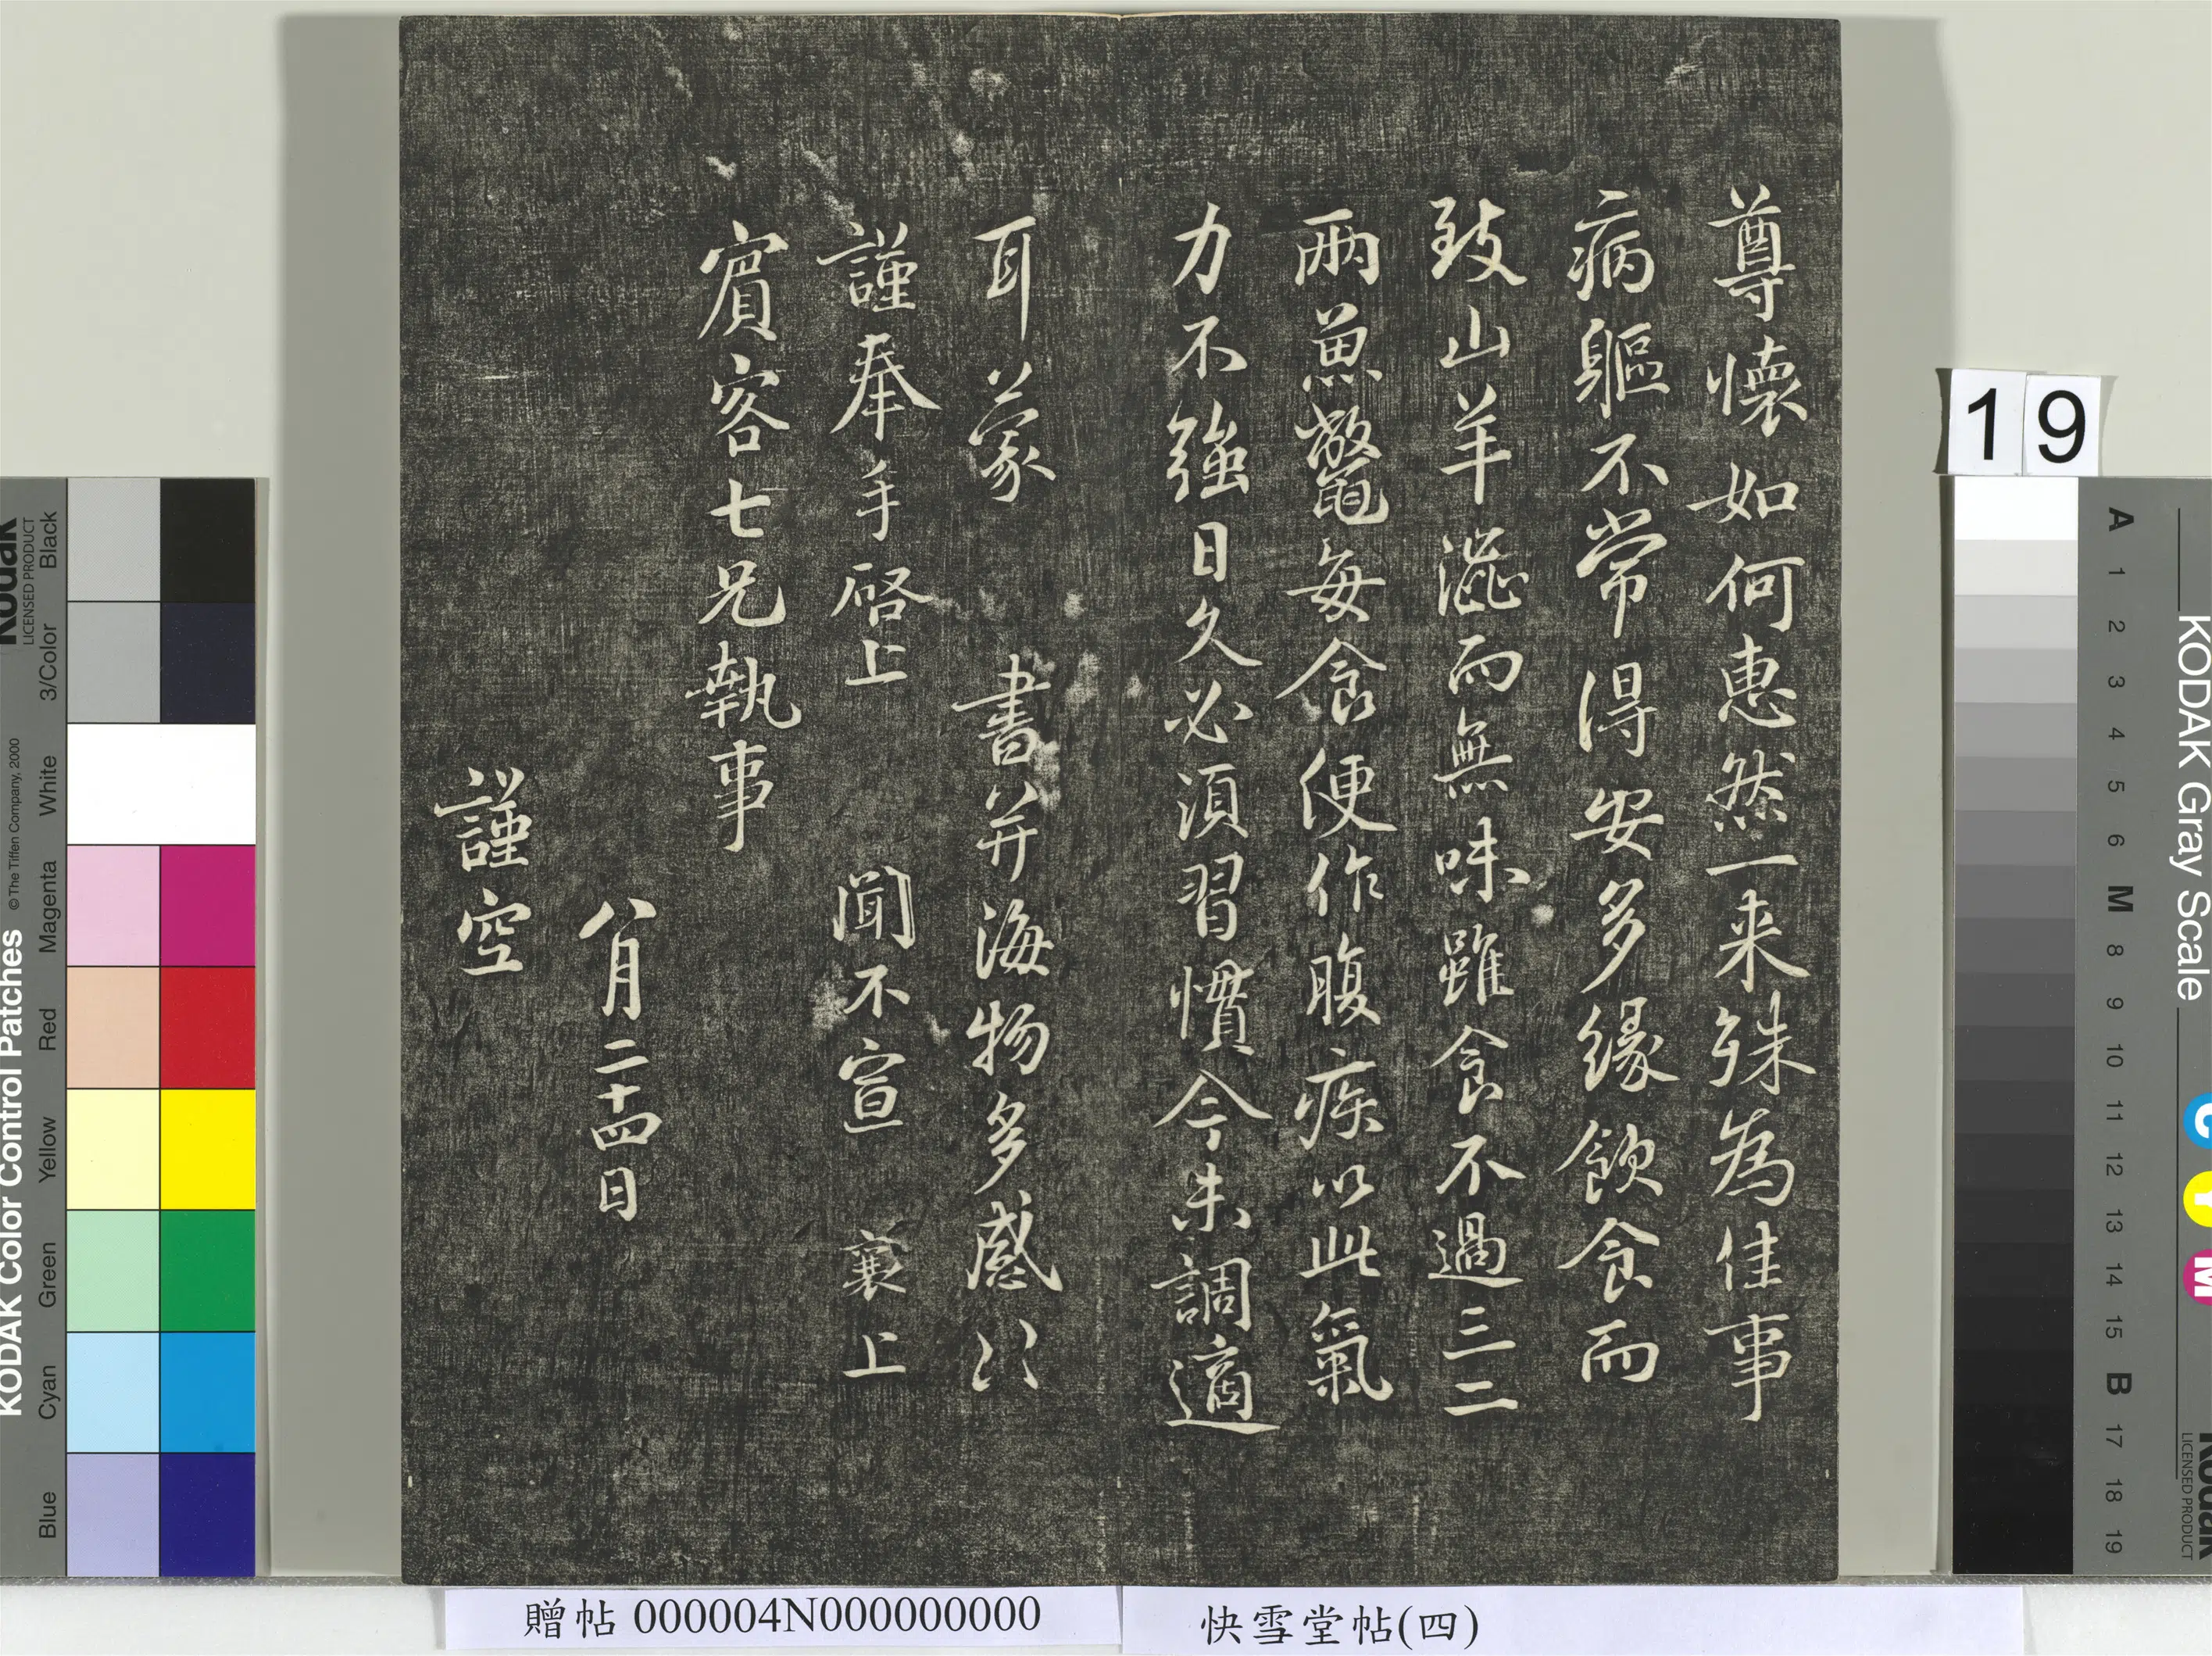 尊懷如何惠然一来殊為佳事
病軀不常得安多緣飲食而
致山羊澁而無味雖食不過三二
兩魚鼈每食便作腹疾以此氣
力不強日久必須習慣今未調適
耳蒙 書并海物多感〻
謹奉手啓上 聞不宣 襄上
賔客七兄執事
八月二十四日
謹空
19
贈帖 000004N000000000
快雪堂帖(四)
KODAK Color Control Patches
© The Tiffen Company, 2000
Kodak
LICENSED PRODUCT
Black
3/Color
White
Magenta
Red
Yellow
Green
Cyan
Blue
KODAK Gray Scale
C
Y
M
Kodak
LICENSED PRODUCT
A 1 2 3 4 5 6 M 8 9 10 11 12 13 14 15 B 17 18 19